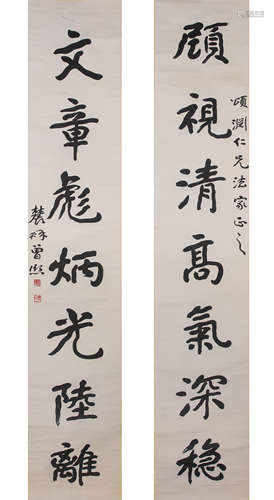 顧視清高氣深穩
頌淵仁兄法家正之
文章彪炳光陸離
農髯曾熙